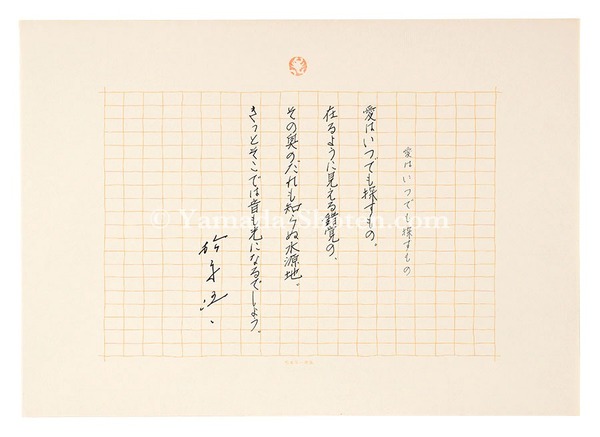 愛はいつでも探すもの
愛はいつでも探すもの。
在るように見える錯覚の、
その奥のだれも知らぬ水源地。
きっとそこでは昔も光になるでしょう。
© Yamada Shoten.com